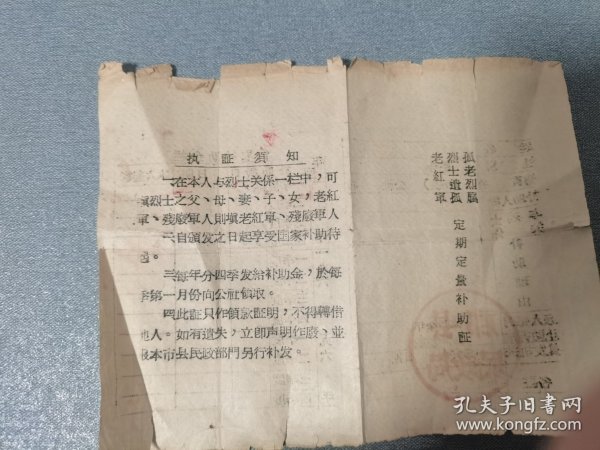 执証須知
一在本人与烈士关係一栏中，可
填烈士之父、母、妻、子、女，老紅
軍、殘廢軍人則填老紅軍、殘廢軍人
二自頒发之日起享受囯家补助待
遇。
三每年分四季发給补助金，於每
季第一月份向公社領取。
四此証只作領款証明，不得轉借
他人。如有遺失，立卽声明作廢、並
报本市县民政部門另行补发。
孤老烈属
烈士遺孤
老紅軍
定期定量补助証
孔夫子旧书网
www.kongfz.com